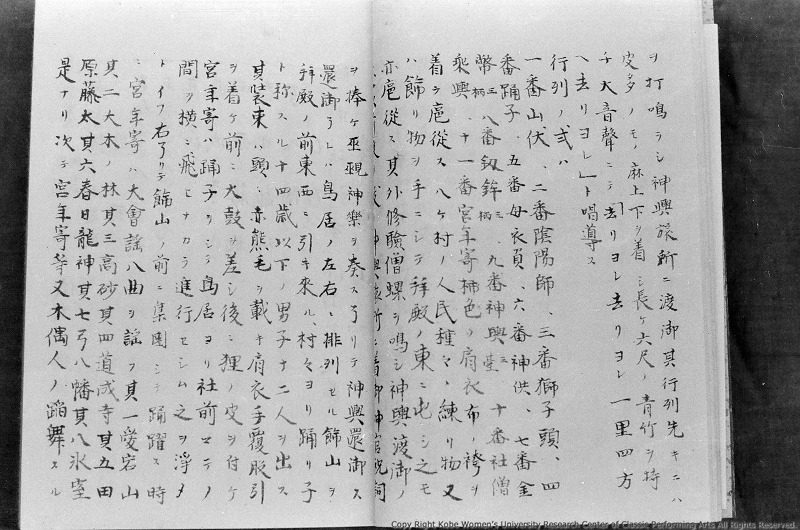 ヲ打鳴ラシ神輿旅所ニ渡御其行列先キニハ
皮多ノモノ麻上下ヲ着シ長ケ六尺ノ青竹ヲ持
チ大音聲ニテ「去リヨレ去リヨレ一里四方
ヘ去リヨレ」ト唱導ス
行列ノ式ハ
一番山伏、二番陰陽師、三番獅子頭、四
番踊子、五番母衣負、六番神供、七番金
幣三柄八番釼鉾三柄、九番神輿三臺十番社僧
乘輿、十一番宮年寄柿色ノ肩衣布ノ袴ヲ
着ヲ扈從ス八ケ村ノ人民種々ノ練リ物又
ハ飾リ物ヲ手ニシテ拜殿ノ東ニ屯シ之モ
亦扈從ス其外修驗僧螺ヲ鳴シ神輿渡御ノ
神輿旅所ニ着御神官祝詞
ヲ捧ケ巫覡神樂ヲ奏ス了リテ神輿還御ス
還御ヲレハ鳥居ノ左右ニ排列セル餝山ヲ
拜殿ノ前東西ニ引キ來ル、村々ヨリ踊リ子
ト称スル十四歳以下ノ男子十二人ヲ出ス
其裝束ハ頭ニ赤熊毛ヲ載キ肩衣手覆股引
ヲ着ケ前ニ大鼓ヲ差シ後ニ狸ノ皮ヲ付ケ
宮年寄ハ踊子ヲシテ鳥居ヨリ社前マテノ
間ヲ横ニ飛ヒナカラ進行セシム之ヲ浄メ
トイフ右了リテ餝山ノ前ニ集團シテ踊躍ス時
ニ宮年寄ハ大會謡八曲ヲ謡フ其一愛宕山
其二大木ノ林其三高砂其四道成寺其五田
原藤太其六春日龍神其七弓八幡其八氷室
是ナリ次テ宮年寄等又木偶人ノ蹈舞スル
Copy Right Kobe Women's University Research Center of Classic Performing Arts All Rights Reserved.